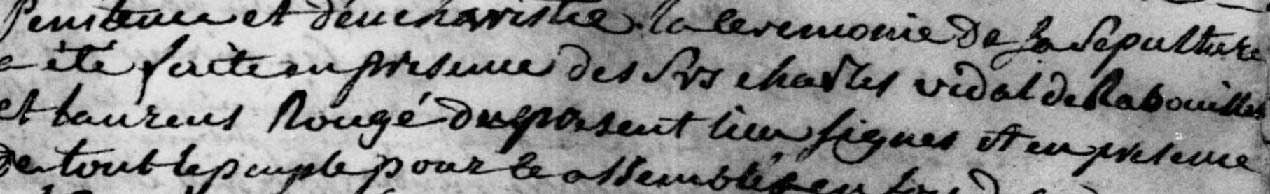 penitence et d'eucharistie. la ceremonie de sa sepulture
a été faite en presence des Srs charles vidal de Rabouilles
et Laurens Rougé du present lieu signes et en presence
de tout le peuple pour ce assemblés en foy de